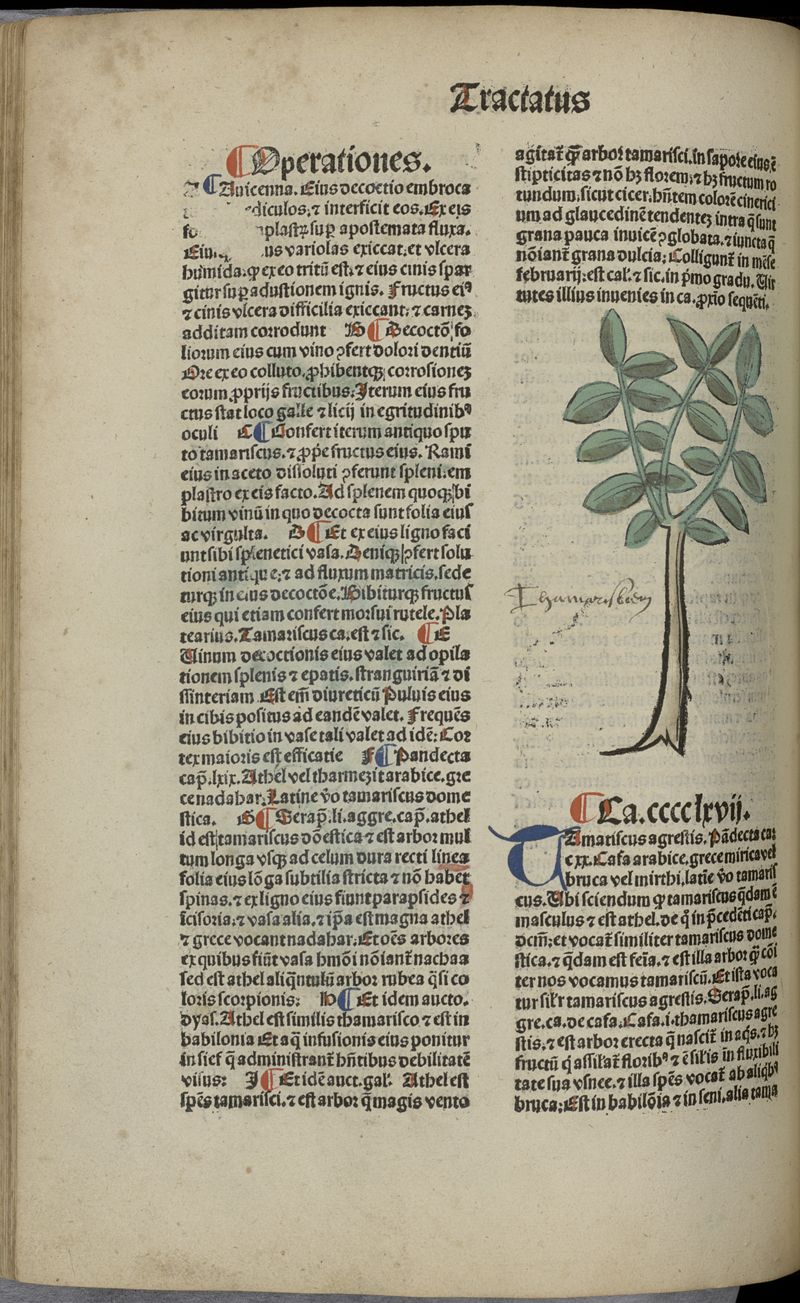 Tractatus
¶ Operationes.
¶ Auicenna. Eius decoctio embroca
diculos.⁊ interficit eos. Ex eis
plastꝝ suꝑ apostemata fluxa.
us variolas exiccat. et vlcera
humida. ꝙ ex eo tritū est. ⁊ eius cinis spar
gitur suꝑ adustionem ignis. Fructus eiꝰ
⁊ cinis vlcera difficilia exiccant: ⁊ carneꝫ
additam corrodunt B ¶ Decoctō fo
liorum eius cum vino ꝯfert dolori dentiū
Ore ex eo colluto. ꝓhibentqꝫ corrosioneꝫ
eorum ꝓprijs fructibus: Iterum eius fru
ctus stat loco galle ⁊ licij in egritudinibꝰ
oculi C ¶ Confert iterum antiquo spu
to tamariscus. ⁊ ꝓpe fructus eius. Rami
eius in aceto dissoluti ꝯferunt spleni. em
plastro ex eis facto. Ad splenem quoqꝫ bi
bitum vinū in quo decocta sunt folia eius
ac virgulta. D ¶ Et ex eius ligno faci
unt sibi splenetici vasa. Deniqꝫ ꝯfert solu
tioni antique: ⁊ ad fluxum matricis. sede
turqꝫ in eius decoctōe. Bibiturqꝫ fructus
eius qui etiam confert morsui rutele. Pla
tearius. Tamariscus ca. est ⁊ sic. ¶ E
Uinum decoctionis eius valet ad opila
tionem splenis ⁊ epatis. stranguiriā ⁊ di
ssinteriam Est em̄ diureticū Puluis eius
in cibis positus ad eandē valet. Frequēs
eius bibitio in vase tali valet ad idē: Cor
tex maioris est efficatie F ¶ Pandecta
cap̄. lxix. Athel vel tharmezit arabice. gre
ce nadabar. Latine v̄o tamariscus dome
stica. G ¶ Serap̄. li. aggre. cap̄. athel
id est tamariscus dōestica ⁊ est arbor mul
tum longa vsqꝫ ad celum dura recti linea
folia eius lōga subtilia stricta ⁊ nō habet
spinas. ⁊ ex ligno eius fiunt parapsides ⁊
icisoria: ⁊ vasa alia. ⁊ ip̄a est magna athel
⁊ grece vocant nadabar: Et oēs arbores
ex quibus fiūt vasa hmōi nōiant̄ nachaa
sed est athel aliq̄ntulū arbor rubea q̄si co
loris scorpionis: H ¶ Et idem aucto.
dyas. Athel est similis thamarisco ⁊ est in
babilonia Et aq̄ infusionis eius ponitur
in sief q̄ administrant̄ hn̄tibus debilitatē
visus: I ¶ Et idē auct. gal. Athel est
sp̄es tamarisci. ⁊ est arbor q̄ magis vento
agitat̄ ꝙ̄ arbor tamarisci. in sapore eius ē
stipticitas ⁊ nō hꝫ florem: ⁊ hꝫ fructum ro
tundum. sicut cicer. hn̄tem colorē cinerici
um ad glaucedinē tendenteꝫ intra q̄ sunt
grana pauca inuicē ꝯglobata. ⁊ iuncta q̄
nōiant̄ grana dulcia: Colligunt̄ in mēse
februarij: est cal. ⁊ sic. in p̄mo gradu. Uir
tutes illius inuenies in ca. ꝓxīo sequēti.
Thamarisken
¶ Ca. cccclxvij.
TAmariscus agrestis. Pādecta ca.
cxx. Casa arabice. grece mirica vel
bruca vel mirthi. latīe v̄o tamaris
cus. Ubi sciendum ꝙ tamariscus q̄dam ē
masculus ⁊ est athel. de q̄ in p̄cedēti cap̄.
dcm̄: et vocat̄ similiter tamariscus dome
stica. ⁊ q̄dam est feīa. ⁊ est illa arbor q̄ cōi
ter nos vocamus tamariscū. Et ista voca
tur silr̄ tamariscus agrestis. Serap̄. li. ag
gre. ca. de casa. Casa. i. thamariscus agre
stis. ⁊ est arbor erecta q̄ nascit̄ in aq̄s. ⁊ hꝫ
fructū q̄ assilat̄ floribꝰ ⁊ ē silis in fluxibili
tate sua vsnee. ⁊ illa sp̄es vocat̄ ab aliqbꝰ
bruca: Est in babilōia ⁊ in seni. alia tama